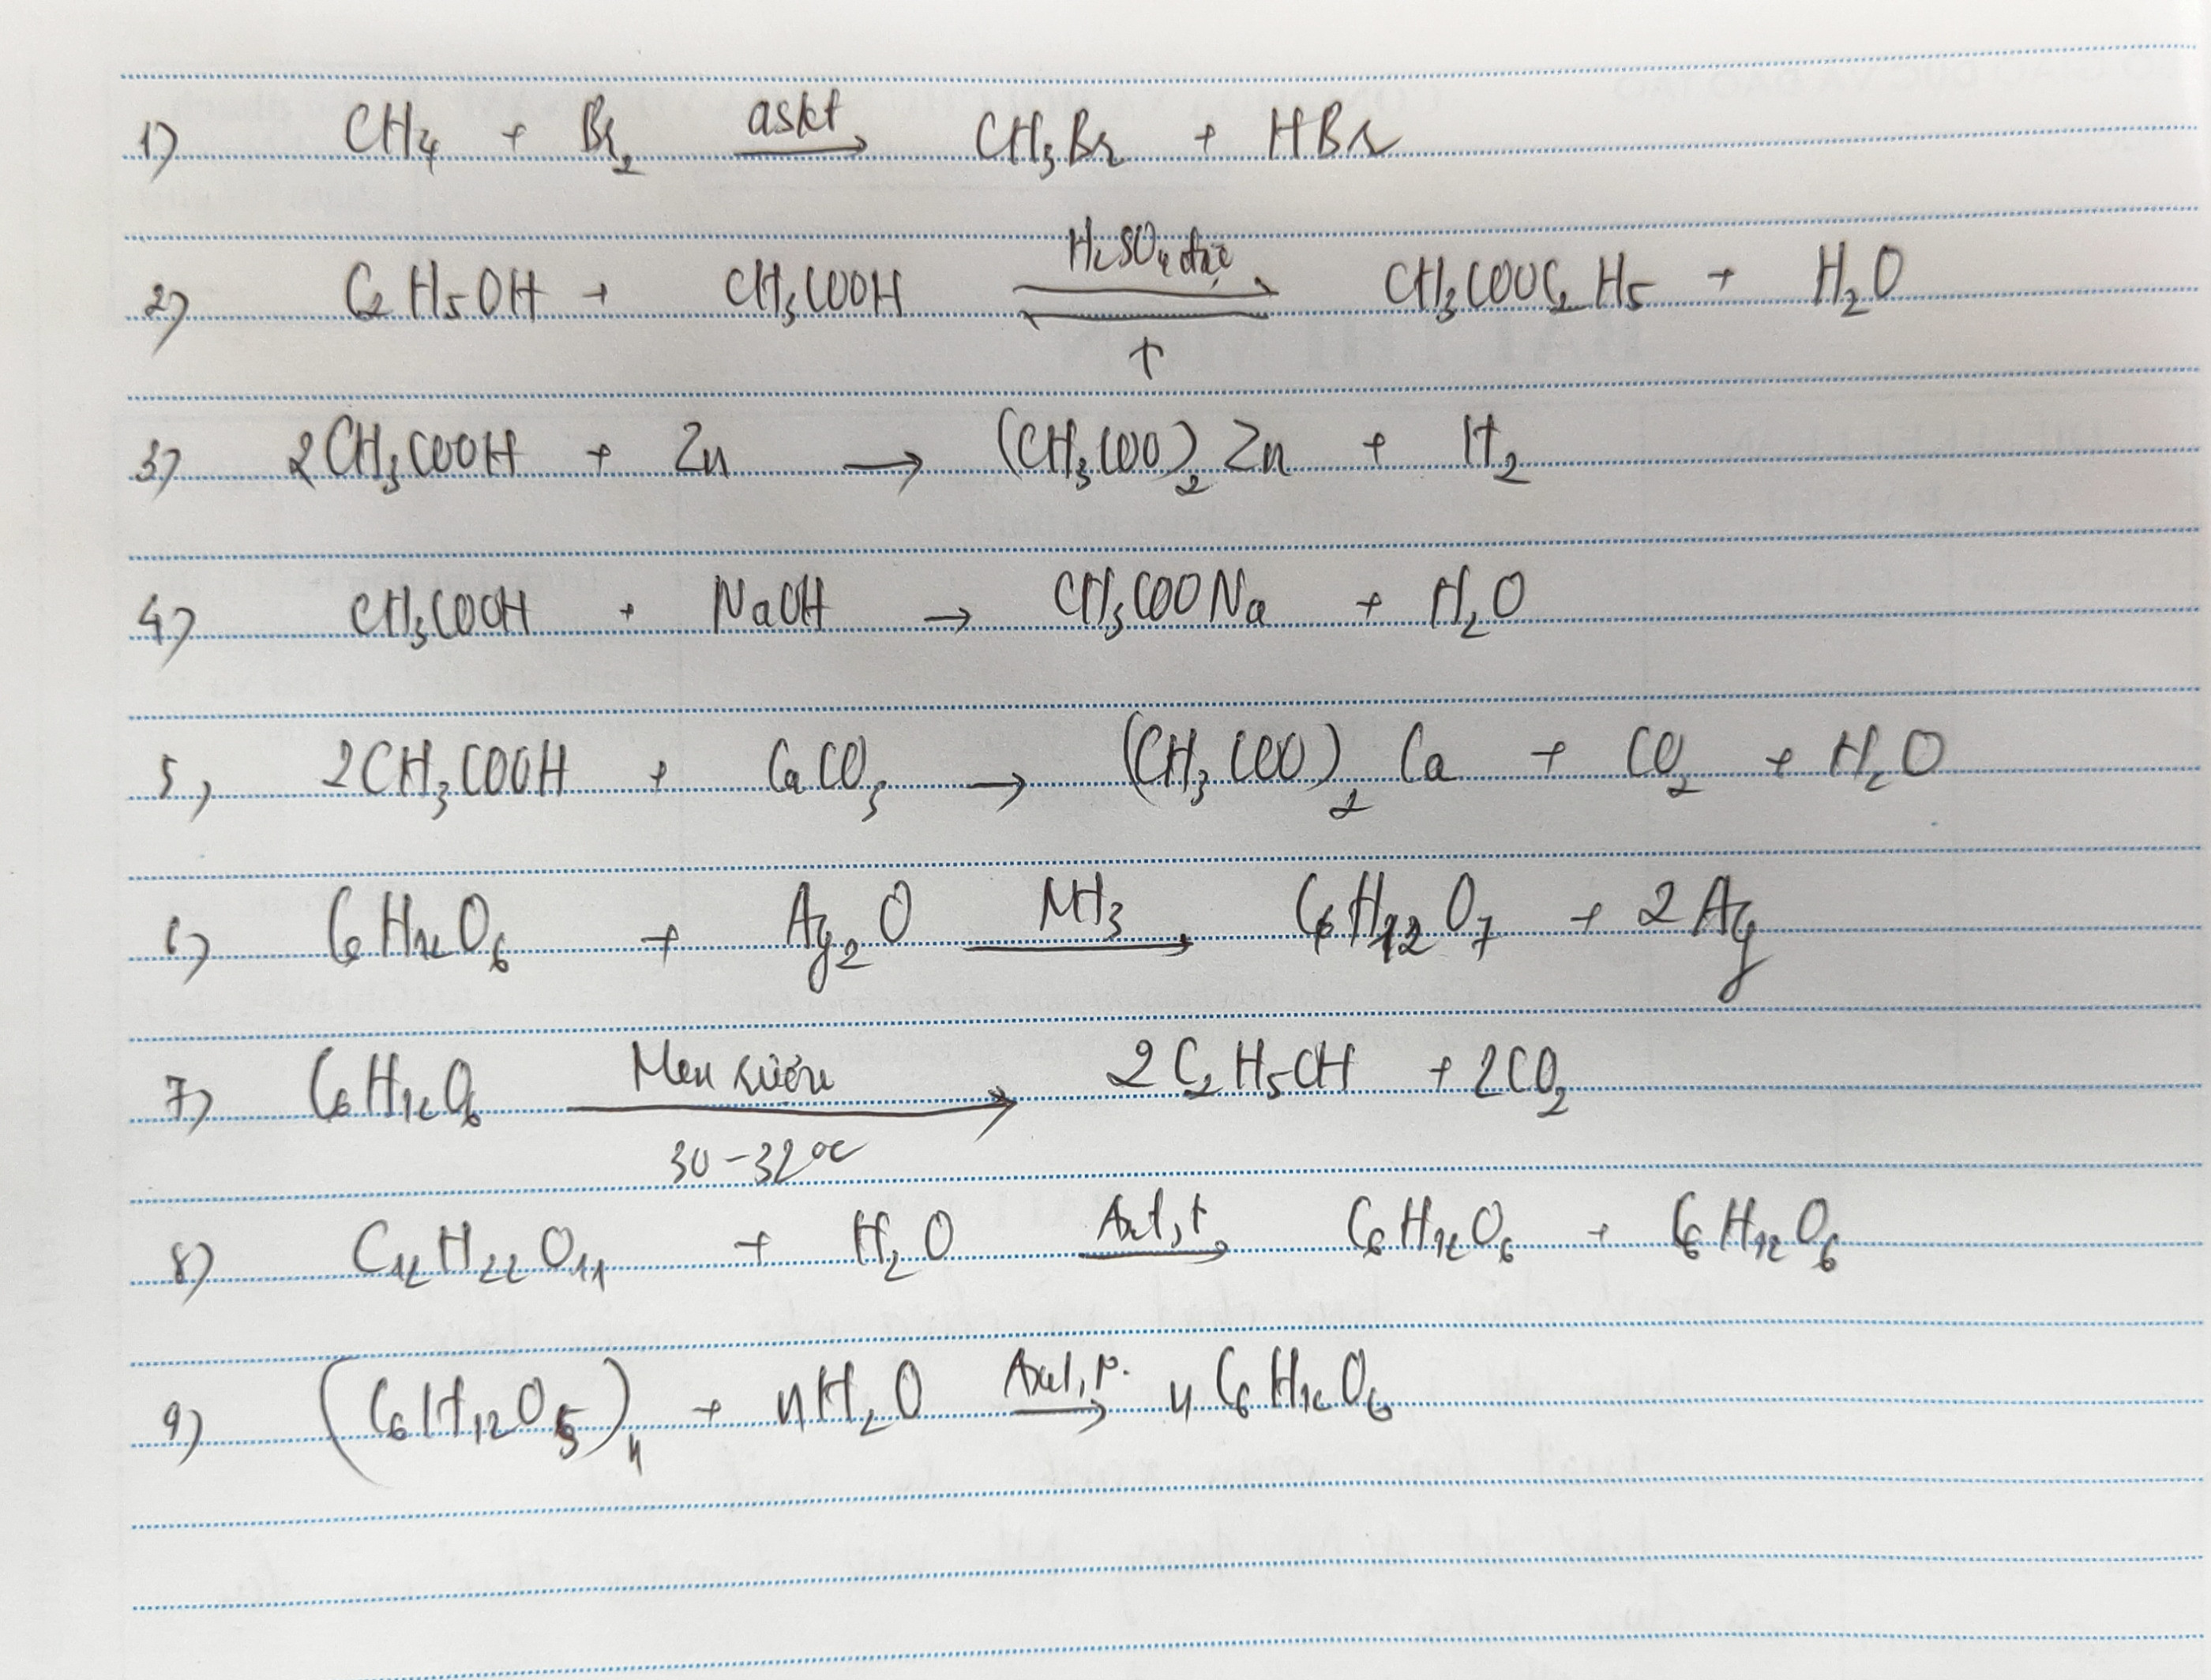 1) CH₄ + Br₂ askt → CH₃Br + HBr
2) C₂H₅OH + CH₃COOH H₂SO₄ đặc ⇌ t CH₃COOC₂H₅ + H₂O
3) 2CH₃COOH + Zn → (CH₃COO)₂Zn + H₂
4) CH₃COOH + NaOH → CH₃COONa + H₂O
5) 2CH₃COOH + CaCO₃ → (CH₃COO)₂Ca + CO₂ + H₂O
6) C₆H₁₂O₆ + Ag₂O NH₃ → C₆H₁₂O₇ + 2Ag
7) C₆H₁₂O₆ Men rượu → 30-32°C 2C₂H₅OH + 2CO₂
8) C₁₂H₂₂O₁₁ + H₂O Axit, t → C₆H₁₂O₆ + C₆H₁₂O₆
9) (C₆H₁₂O₅)ₙ + nH₂O Axit, t° → nC₆H₁₂O₆